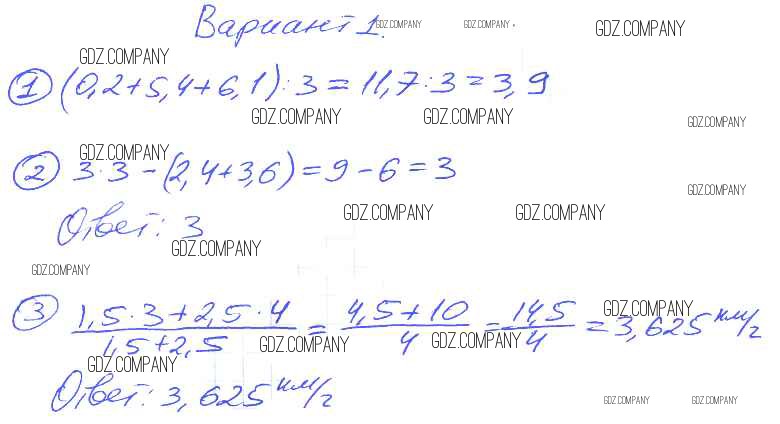 Вариант 1. GDZ.COMPANY GDZ.COMPANY GDZ.COMPANY
GDZ.COMPANY
1 (0,2+5,4+6,1):3=11,7:3=3,9
GDZ.COMPANY GDZ.COMPANY GDZ.COMPANY
GDZ.COMPANY
2 3·3-(2,4+3,6)=9-6=3
GDZ.COMPANY
GDZ.COMPANY GDZ.COMPANY
Ответ: 3
GDZ.COMPANY
GDZ.COMPANY
3 (1,5·3+2,5·4)/(1,5+2,5)=(4,5+10)/4=14,5/4=3,625 км/г
GDZ.COMPANY
GDZ.COMPANY GDZ.COMPANY
GDZ.COMPANY
Ответ: 3,625 км/г
GDZ.COMPANY GDZ.COMPANY